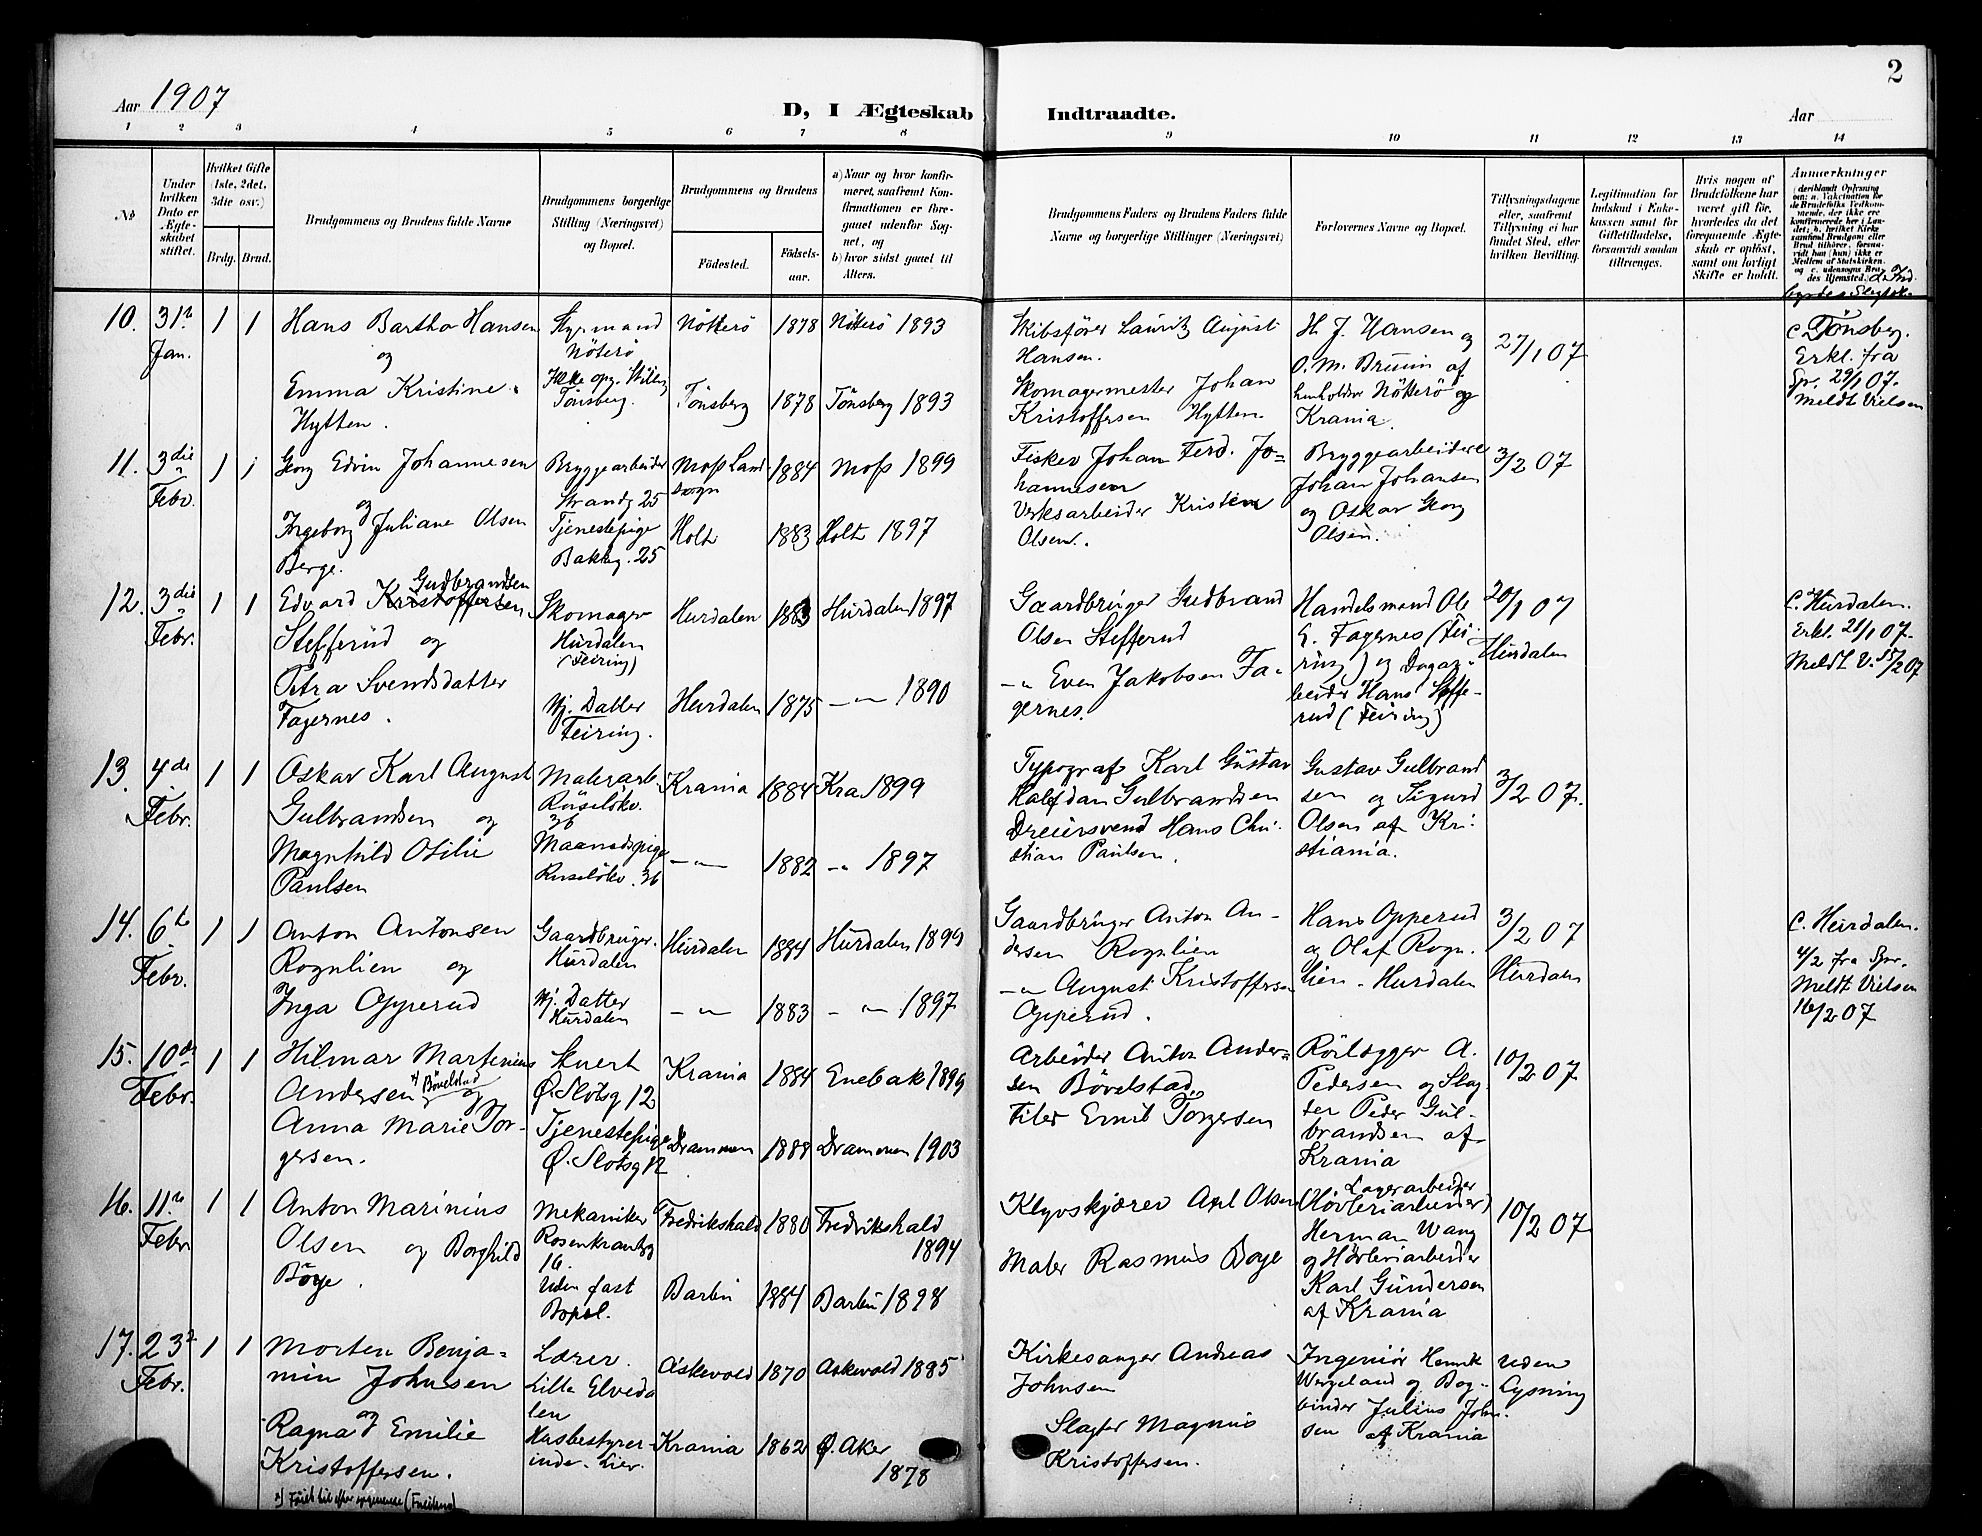 Aar 1907
D, I Ægteskab Indtraadte.
Aar
2
1 2 3 4 5 6 7 8 9 10 11 12 13 14
№
Under hvilken Dato er Ægteskabet stiftet.
Hvilket Gifte (1ste, 2det, 3die osv.)
Brdg. Brud.
Brudgommens og Brudens fulde Navne
Brudgommens borgerlige Stilling (Næringsvei) og Bopæl.
Brudgommens og Brudens
Fødested.
Fødselsaar.
a) Naar og hvor konfirmeret, saafremt Konfirmationen er foregaaet udenfor Sognet, og
b) hvor sidst gaaet til Alters.
Brudgommens Faders og Brudens Faders fulde Navne og borgerlige Stillinger (Næringsvei)
Forlovernes Navne og Bopæl.
Tillysningsdagene eller, saafremt Tillysning ei har fundet Sted, efter hvilken Bevilling.
Legitimation for Indskud i Enkekassen samt for Giftetilladelse, forsaavidt saadan tiltrænges.
Hvis nogen af Brudefolkene har været gift før, hvorledes da det foregaaende Ægteskab er opløst, samt om lovligt Skifte er holdt.
Anmærkninger
10. 31te Jan. 1 1
Hans Bartho Hansen
og
Emma Kristine
Hytten.
Styrmand
Nøterø
Ikke opg. Stilling
Tønsberg.
Nøtterø 1878 Nøtterø 1893
Tønsberg 1878 Tønsberg 1893
Skibsfører Lauritz August
Hansen.
Skomagermester Johan
Kristoffersen Hytten.
H. J. Hansen og
O. M. Bruun af
henholdsv Nøtterø og
Krania.
27/1 07
c Tønsberg.
Erkl. fra
Spr. 29/1 07.
Meldt Vielsen
11. 3die Febr. 1 1
Georg Edvin Johannesen
og
Ingeborg Juliane Olsen
Berge.
Bryggearbeider
Strandg 25
Tjenestepige
Bakkeg. 25
Moss Land-
sogn 1884 Moss 1899
Holt 1883 Holt 1897
Fisker Johan Ferd. Jo=
hannesen
Verksarbeider Kristen
Olsen.
Bryggearbeidere
Johan Johansen
og Oskar Georg
Olsen.
3/2 07
12. 3die Febr. 1 1
Gudbrandsen
Edvard Kristoffersen
Stefferud og
Petra Svendsdatter
Fagernes.
Skomager
Hurdalen
(Feiring)
Hj. Datter
Feiring.
Hurdalen 1883 Hurdalen 1897
Hurdalen 1875 -"- 1890
Gaardbruger Gudbrand
Olsen Stefferud
-"- Even Jakobsen Fa-
gernes.
Handelsmand Ole
E. Fagernes (Fei-
ring) og Dagar-
beider Hans Steffe-
rud (Feiring)
20/1 07
Hurdalen
c. Hurdalen.
Erkl. 21/1 07.
Meldt V. 15/2 07
13. 4de Febr. 1 1
Oskar Karl August
Gulbrandsen og
Magnhild Otilie
Paulsen
Malerarb.
Ruseløkv.
36
Maanedspige
Ruseløkv. 36
Krania 1884 Kra 1899
-"- 1882 -"- 1897
Typograf Karl Gustav
Halfdan Gulbrandsen
Dreiersvend Hans Chri-
stian Paulsen.
Gustav Gulbrand
sen og Sigurd
Olsen af Kri-
stiania.
3/2 07.
14. 6te Febr. 1 1
Anton Antonsen
Rognlien og
Inga Opperud
Gaardbruger.
Hurdalen
Hj. Datter
Hurdalen
Hurdalen 1884 Hurdalen 1899
-"- 1883 -"- 1897
Gaardbruger Anton An-
dersen Rognlien
-"- August Kristoffersen
Opperud.
Hans Opperud
og Olaf Rogn-
lien - Hurdalen
3/2 07
Hurdalen
c. Hurdalen.
4/2 fra Spr.
Meldt Vielsen
16/2 07
15. 10de Febr. 1 1
Hilmar Martenius
Andersen *) Bövelstad og
Anna Marie Tor-
gersen.
Stuert
Ø. Slotsg 12
Tjenestepige
Ø. Slotsg 12
Krania 1884 Enebak 1899
Drammen 1888 Drammen 1903
Arbeider Anton Ander=
sen Bövelstad
Filer Emil Torgersen
Rørlægger A.
Pedersen og Slag-
ter Peder Gul-
brandsen af
Krania
10/2 07
16. 11te Febr 1 1
Anton Marinius
Olsen og Borghild
Boye.
Mekaniker
Rosenkrantzg
16.
Uden fast
Bopæl.
Fredrikshald 1880 Fredrikshald
1894
Barbu 1884 Barbu 1898
Klyvskjærer Axel Olsen
Maler Rasmus Boye
Lagerarbeider
(Høvleriarbeider)
Herman Wang
og Høvleriarbeider
Karl Gundersen
af Krania
10/2 07
17. 23de Febr. 1 1
Morten Benja=
min Johnsen
og
Ragna Emilie
Kristoffersen.
Lærer.
Lille Elveda
len
Husbestyrer-
inde. Lier.
Askevold 1870 Askevold 1885
Krania 1862 Ø. Aker
1878
Kirkesanger Andreas
Johnsen
Slagter Magnus
Kristoffersen.
Ingeniør Henrik
Wergeland og Bog-
binder Julius John-
sen af Krania
uden
Lysning